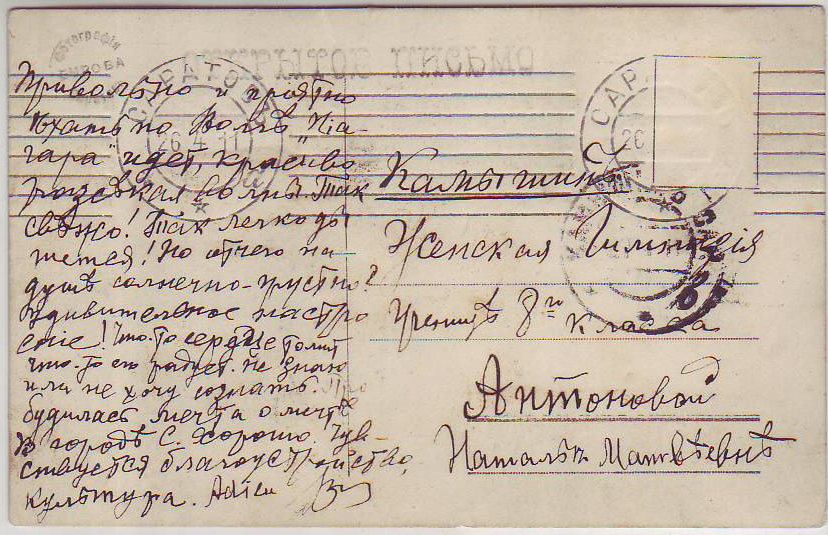 Фотографія
ОТКРЫТОЕ ПИСЬМО
САРАТОВЪ
26 4 11
САР
26
Привольно и пріятно
ѣхать по Волгѣ. „Ніа-
гара" идет, красиво
разсѣкая волны. Так
свѣжо! Так легко ды
шется! Но отчего на
душѣ солнечно-грустно?
Удивительное настро
еніе! Что-то сердце томит
что-то его радует. Не знаю
или не хочу сознать. Про
будилась мечта о мечтѣ
В городѣ С. Хорошо. Чув-
ствуется благоустройство,
культура. Adieu
Камышинъ
Женская Гимназія
Ученицѣ 8го класса
Антоновой
Натальи Матвѣевнѣ